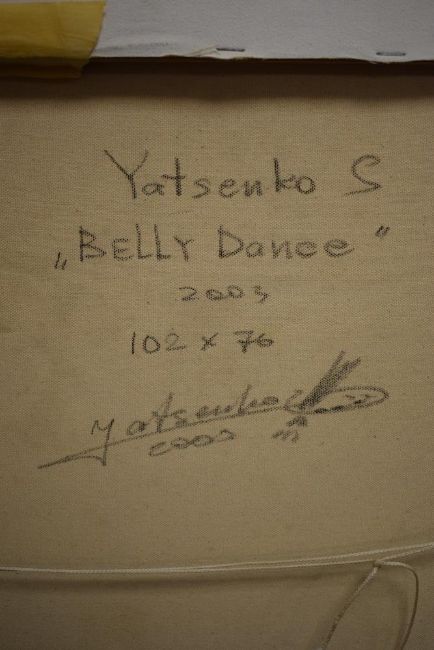 Yatsenko S
„BELLY Dance"
2003
102 x 76
Yatsenko